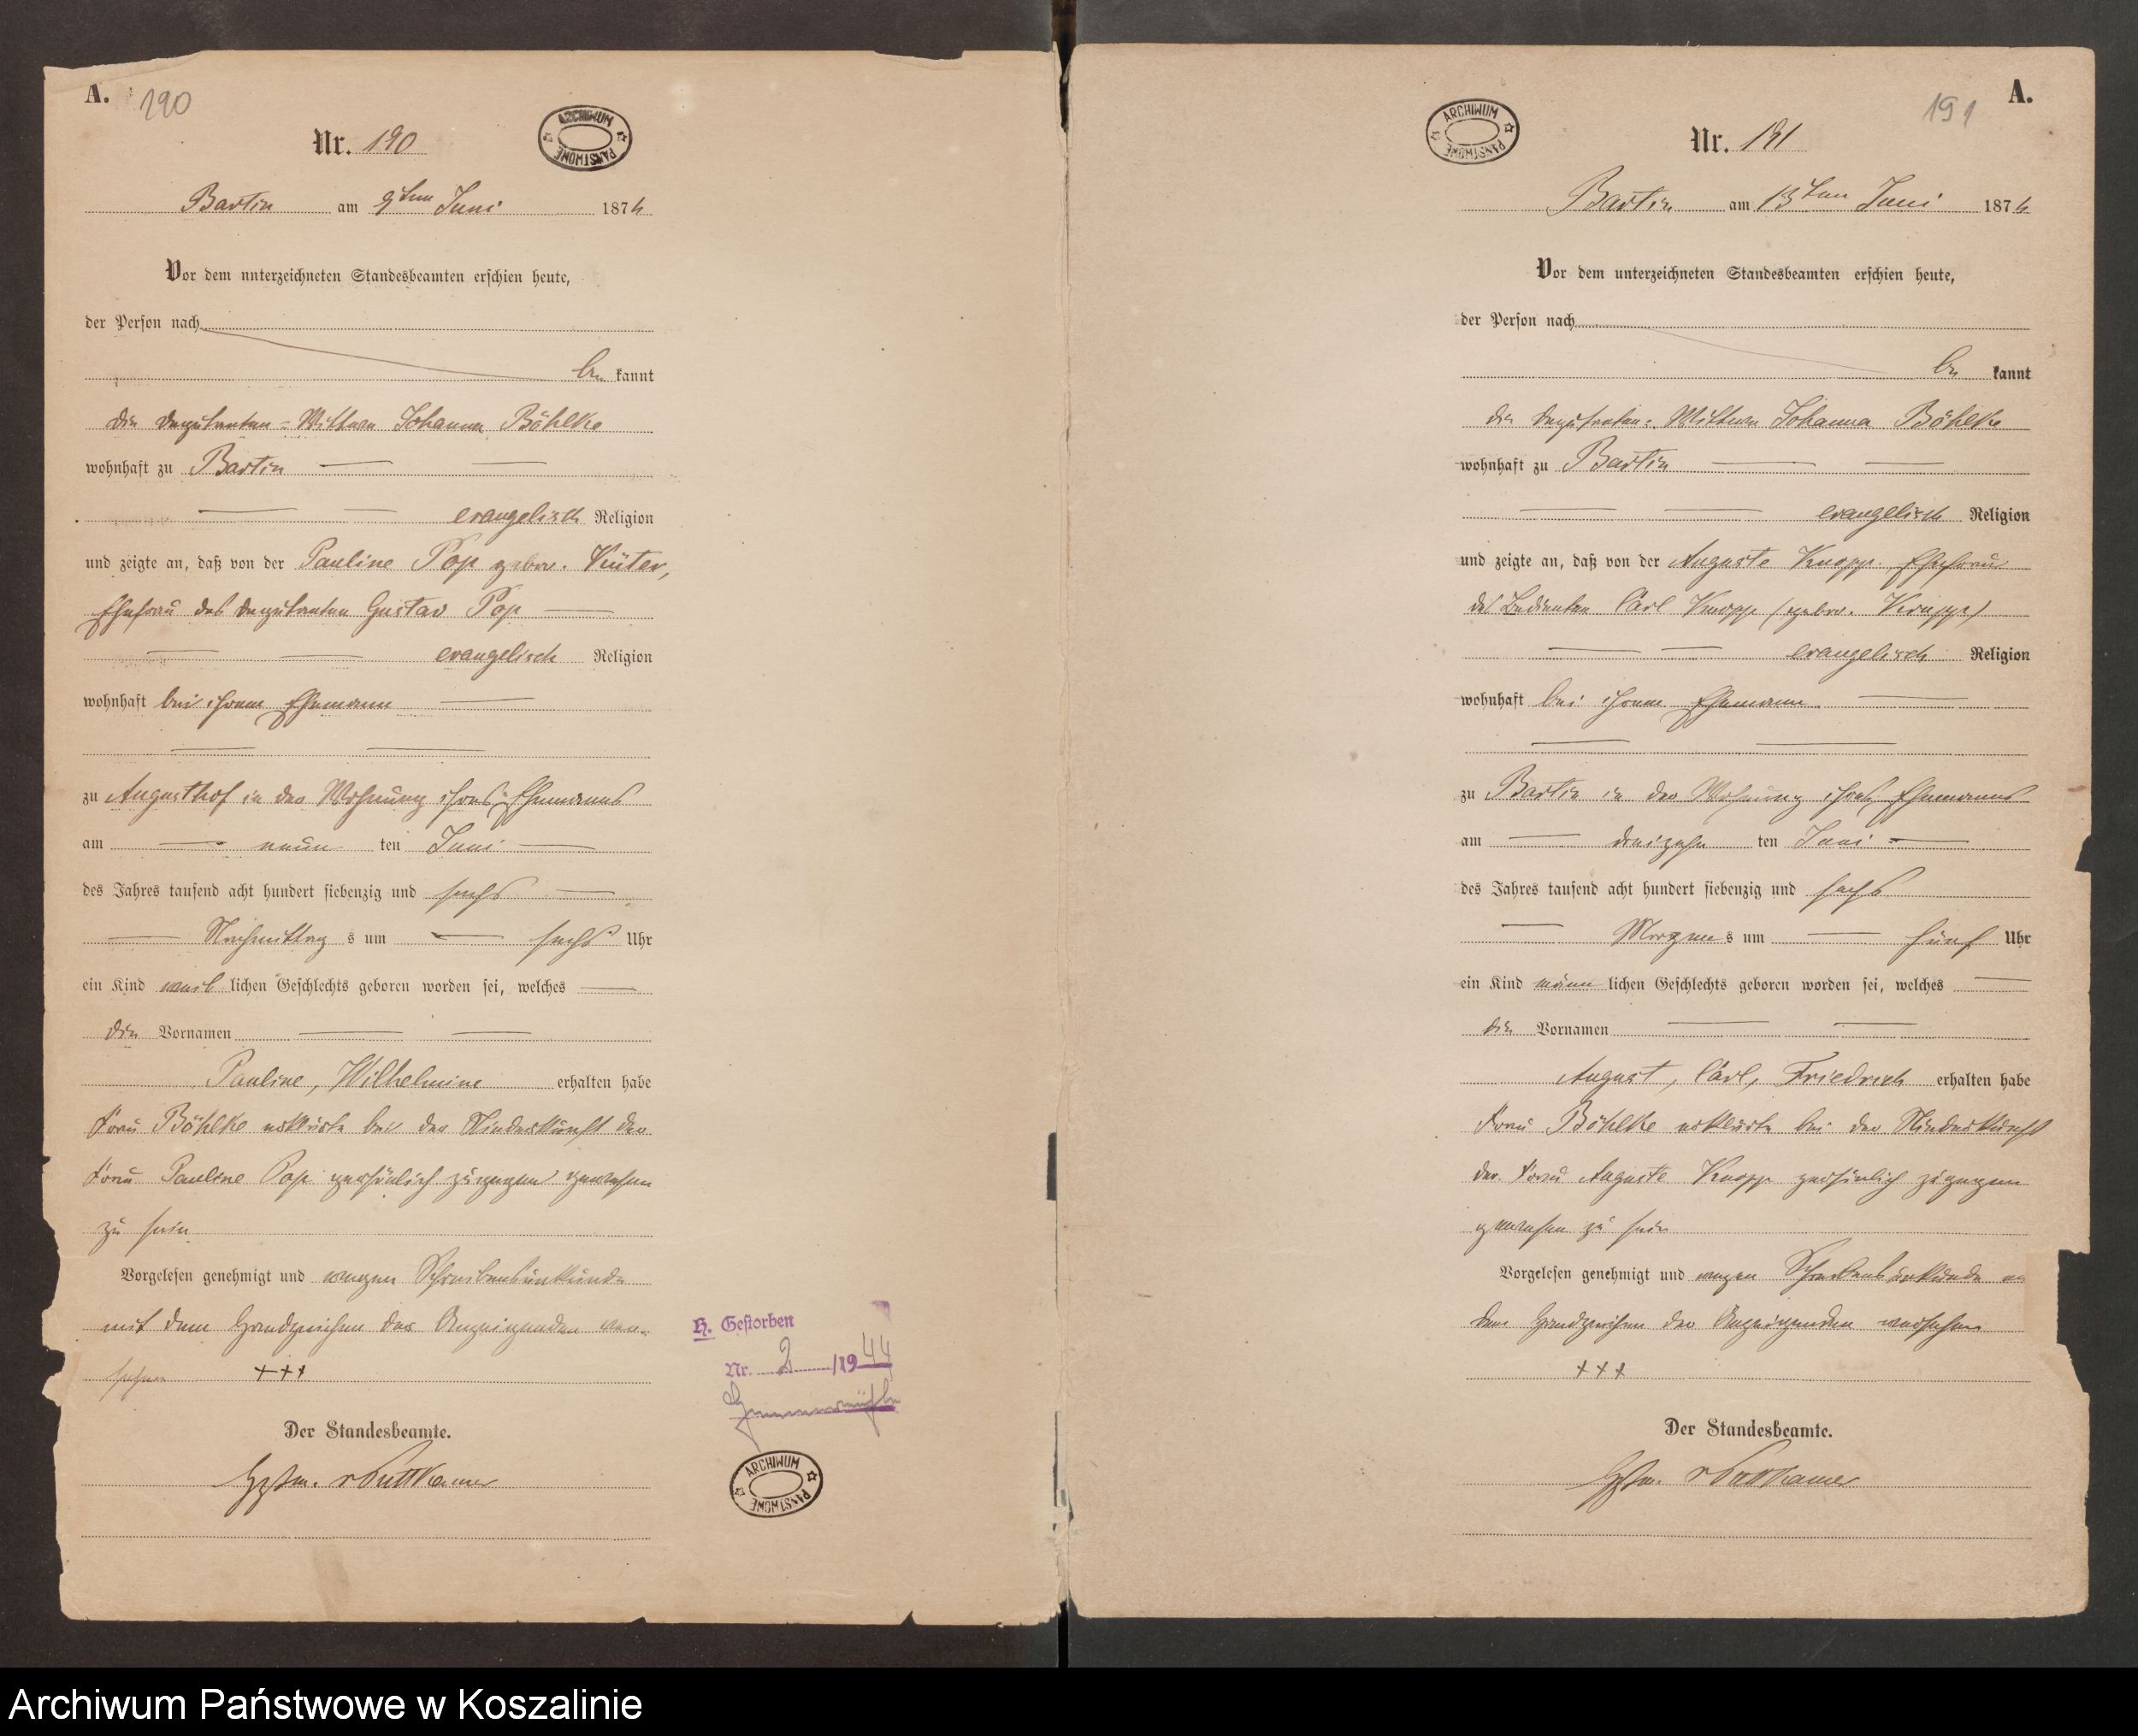 A. 190
Nr. 190
ARCHIWUM PAŃSTWOWE
Bartin am 9ten Juni 1876
Vor dem unterzeichneten Standesbeamten erschien heute,
der Person nach
be kannt
die Deputanten-Wittwe Johanna Böhlke
wohnhaft zu Bartin
evangelisch Religion
und zeigte an, daß von der Pauline Pop gebor. Küter,
Ehefrau des Deputanten Gustav Pop
evangelisch Religion
wohnhaft bei ihrem Ehemann
zu Augusthof in der Wohnung ihres Ehemanns
am neun ten Juni
des Jahres tausend acht hundert siebenzig und sechs
Nachmittag s um sechs Uhr
ein Kind weib lichen Geschlechts geboren worden sei, welches
die Vornamen
Pauline, Wilhelmine erhalten habe
Frau Böhlke erklärte bei der Niederkunft der
Frau Pauline Pop persönlich zugegen gewesen
zu sein
Vorgelesen genehmigt und wegen Schreibensunkunde
mit dem Handzeichen der Anzeigenden ver-
sehen +++
Der Standesbeamte.
v Puttkamer
H. Gestorben
Nr. 2 /1944
ARCHIWUM PAŃSTWOWE
A.
191
Nr. 191
ARCHIWUM PAŃSTWOWE
Bartin am 13ten Juni 1876
Vor dem unterzeichneten Standesbeamten erschien heute,
der Person nach
be kannt
die Deputanten-Wittwe Johanna Böhlke
wohnhaft zu Bartin
evangelisch Religion
und zeigte an, daß von der Auguste Knopp Ehefrau
des Bedienten Carl Knopp (gebor.
evangelisch Religion
wohnhaft bei ihrem Ehemann
zu Bartin in der Wohnung ihres Ehemanns
am dreizehn ten Juni
des Jahres tausend acht hundert siebenzig und sechs
Morgen s um fünf Uhr
ein Kind männ lichen Geschlechts geboren worden sei, welches
die Vornamen
August, Carl, Friedrich erhalten habe
Frau Böhlke erklärte bei der Niederkunft
der Frau Auguste Knopp persönlich zugegen
gewesen zu sein
Vorgelesen genehmigt und wegen Schreibensunkunde
dem Handzeichen der Anzeigenden versehen
+++
Der Standesbeamte.
v Puttkamer
Archiwum Państwowe w Koszalinie